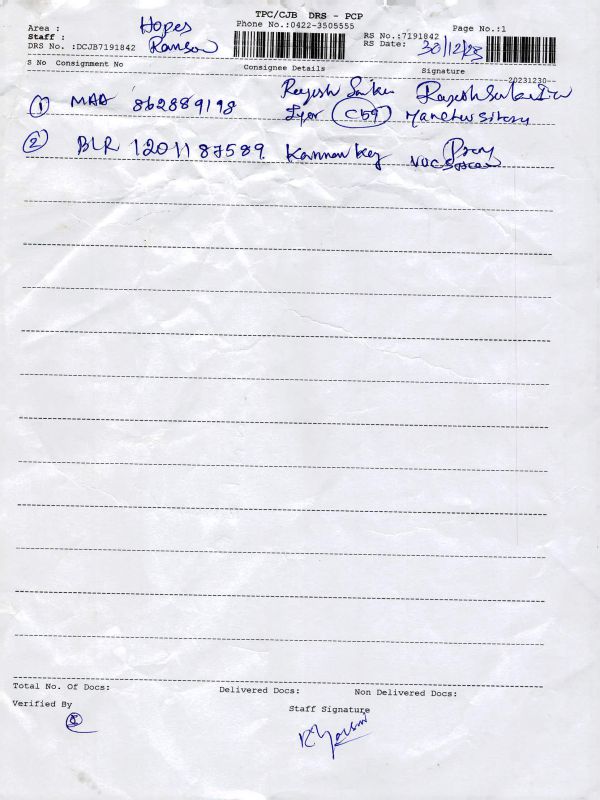 TPC/CJB DRS - PCP
Area : Hopes
Phone No.:0422-3505555
Page No.:1
Staff :
RS No.:7191842
DRS No. :DCJB7191842
RS Date: 30/12/23
S No Consignment No Consignee Details Signature
--20231230--
1 MAA 862889198 Rajesh
Iyer C59
2 BLR 1201187589
Total No. Of Docs: Delivered Docs: Non Delivered Docs:
Verified By
Staff Signature